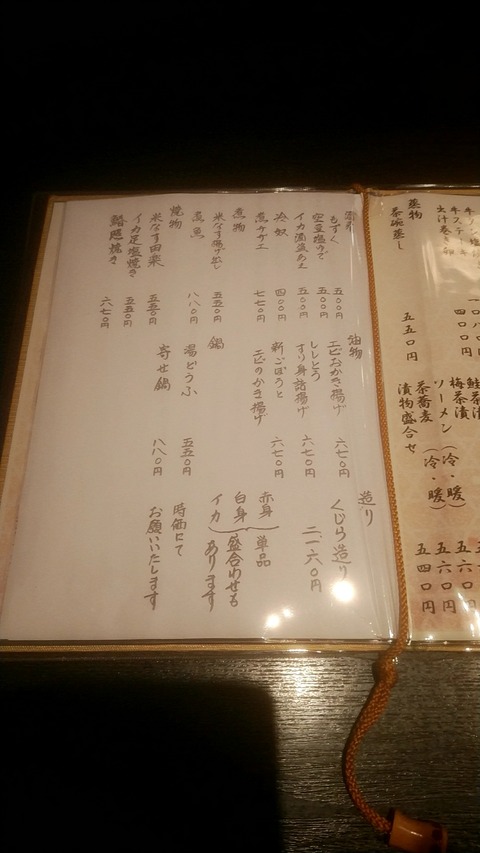 蒸物
茶碗蒸し
五五〇円
出汁巻き卵
四〇〇円
鮭茶漬
梅茶漬
五六〇円
ソーメン(冷・暖)
五六〇円
茶蕎麦(冷・暖)
五四〇円
漬物盛合せ
もずく
五〇〇円
空豆塩ゆで
五〇〇円
イカ酒盗あえ
五〇〇円
冷奴
四〇〇円
煮サザエ
七七〇円
煮物
米なす揚げ出し
五五〇円
煮魚
八八〇円
焼物
米なす田楽
五五〇円
イカ足塩焼き
五五〇円
六七〇円
油物
エビおかき揚げ
六七〇円
ししとう
すり身詰揚げ
六七〇円
新ごぼうと
エビのかき揚げ
六七〇円
鍋
湯どうふ
五五〇円
寄せ鍋
八八〇円
造り
くじら造り
二、一六〇円
赤身
白身
イカ
単品
盛合わせも
あります
時価にて
お願いいたします